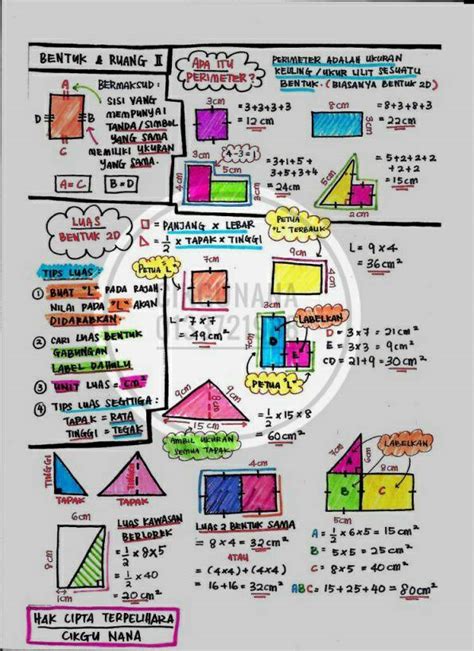 BENTUK & RUANG II
A
D
B
C
BERMAKSUD:
SISI YANG
MEMPUNYAI
TANDA/SIMBOL
YANG SAMA
MEMILIKI UKURAN
YANG SAMA.
A=C
B=D
APA ITU
PERIMETER?
PERIMETER ADALAH UKURAN
KELILING/UKUR LILIT SESUATU
BENTUK. (BIASANYA BENTUK 2D)
3cm
= 3+3+3+3
= 12cm
8cm
3cm
= 8+3+8+3
= 22cm
3cm
4-3=1
5cm
4cm
3cm
= 3+1+5+
3+5+4+3
= 24cm
5cm
2cm
= 5+2+2+2
+2+2
= 15cm
LUAS
BENTUK 2D
= PANJANG x LEBAR
= 1/2 x TAPAK x TINGGI
TIPS LUAS
1 BUAT "L" PADA RAJAH.
NILAI PADA "L" AKAN
DIDARABKAN.
2 CARI LUAS BENTUK
GABUNGAN.
LABEL DAHULU
3 UNIT LUAS = cm²
4 TIPS LUAS SEGITIGA:
TAPAK = RATA
TINGGI = TEGAK
PETUA "L"
7cm
L = 7x7
= 49cm²
PETUA
"L" TERBALIK
9cm
4cm
L = 9x4
= 36cm²
LABELKAN
3cm
7cm
D
E
PETUA "L"
D = 3x7 = 21cm²
E = 3x3 = 9cm²
CD = 21+9 = 30cm²
9cm
9cm
8cm
15cm
AMBIL UKURAN
SEMUA TAPAK
= 1/2 x 15 x 8
= 60cm²
TINGGI
TAPAK
TINGGI
TAPAK
6cm
8cm
1cm
LUAS KAWASAN
BERLOREK
= 1/2 x 8x5
= 1/2 x 40
= 20cm²
8cm
4cm
LUAS 2 BENTUK SAMA
= 8x4 = 32cm²
ATAU
= (4x4)+(4x4)
= 16+16 = 32cm²
LABELKAN
A
B
C
5cm
A = 1/2 x6x5 = 15cm²
B = 5x5 = 25cm²
C = 8x5 = 40cm²
ABC = 15+25+40 = 80cm²
HAK CIPTA TERPELIHARA
CIKGU NANA